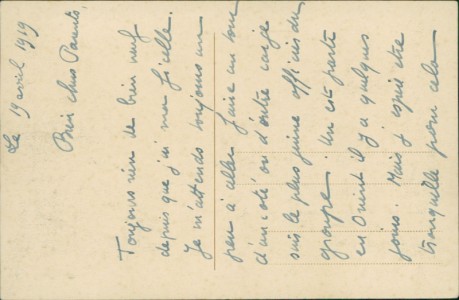 Le 19 avril 1919
Bien chers Parents,
Toujours rien de bien neuf
depuis que j'ai ma ficelle.
Je m'attends toujours un
peu à aller faire un tour
d'un côté ou d'autre car je
suis le plus jeune officier du
groupe. Un est parti
en Orient il y a quelques
jours. Mais j'espère être
tranquille pour cela